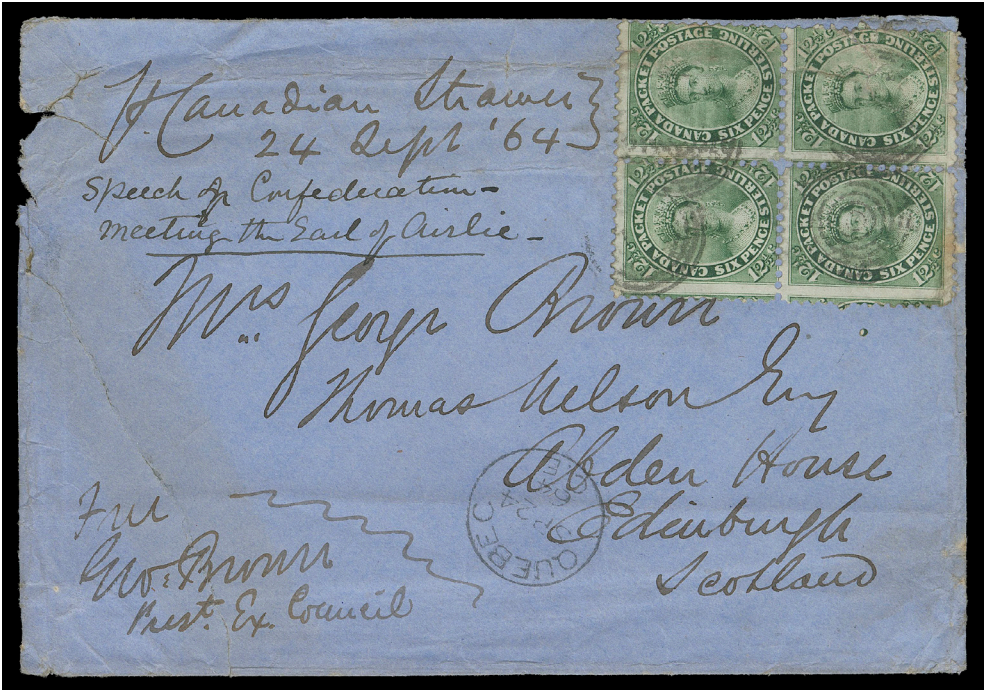 P. Canadian Steamer
24 Sept '64
Speech of Confederation –
meeting the Earl of Airlie –
Mrs. George Brown
Thomas Nelson Esq
Abden House
Edinburgh
Scotland
Free
Geo: Brown
Prest. Ex. Council
QUEBEC
SP 24
64
CANADA PACKET POSTAGE
SIX PENCE STERLING
12½ c
12½ c
12½ c
12½ c
CANADA PACKET POSTAGE
SIX PENCE STERLING
12½ c
12½ c
12½ c
12½ c
CANADA PACKET POSTAGE
SIX PENCE STERLING
12½ c
12½ c
12½ c
12½ c
CANADA PACKET POSTAGE
SIX PENCE STERLING
12½ c
12½ c
12½ c
12½ c